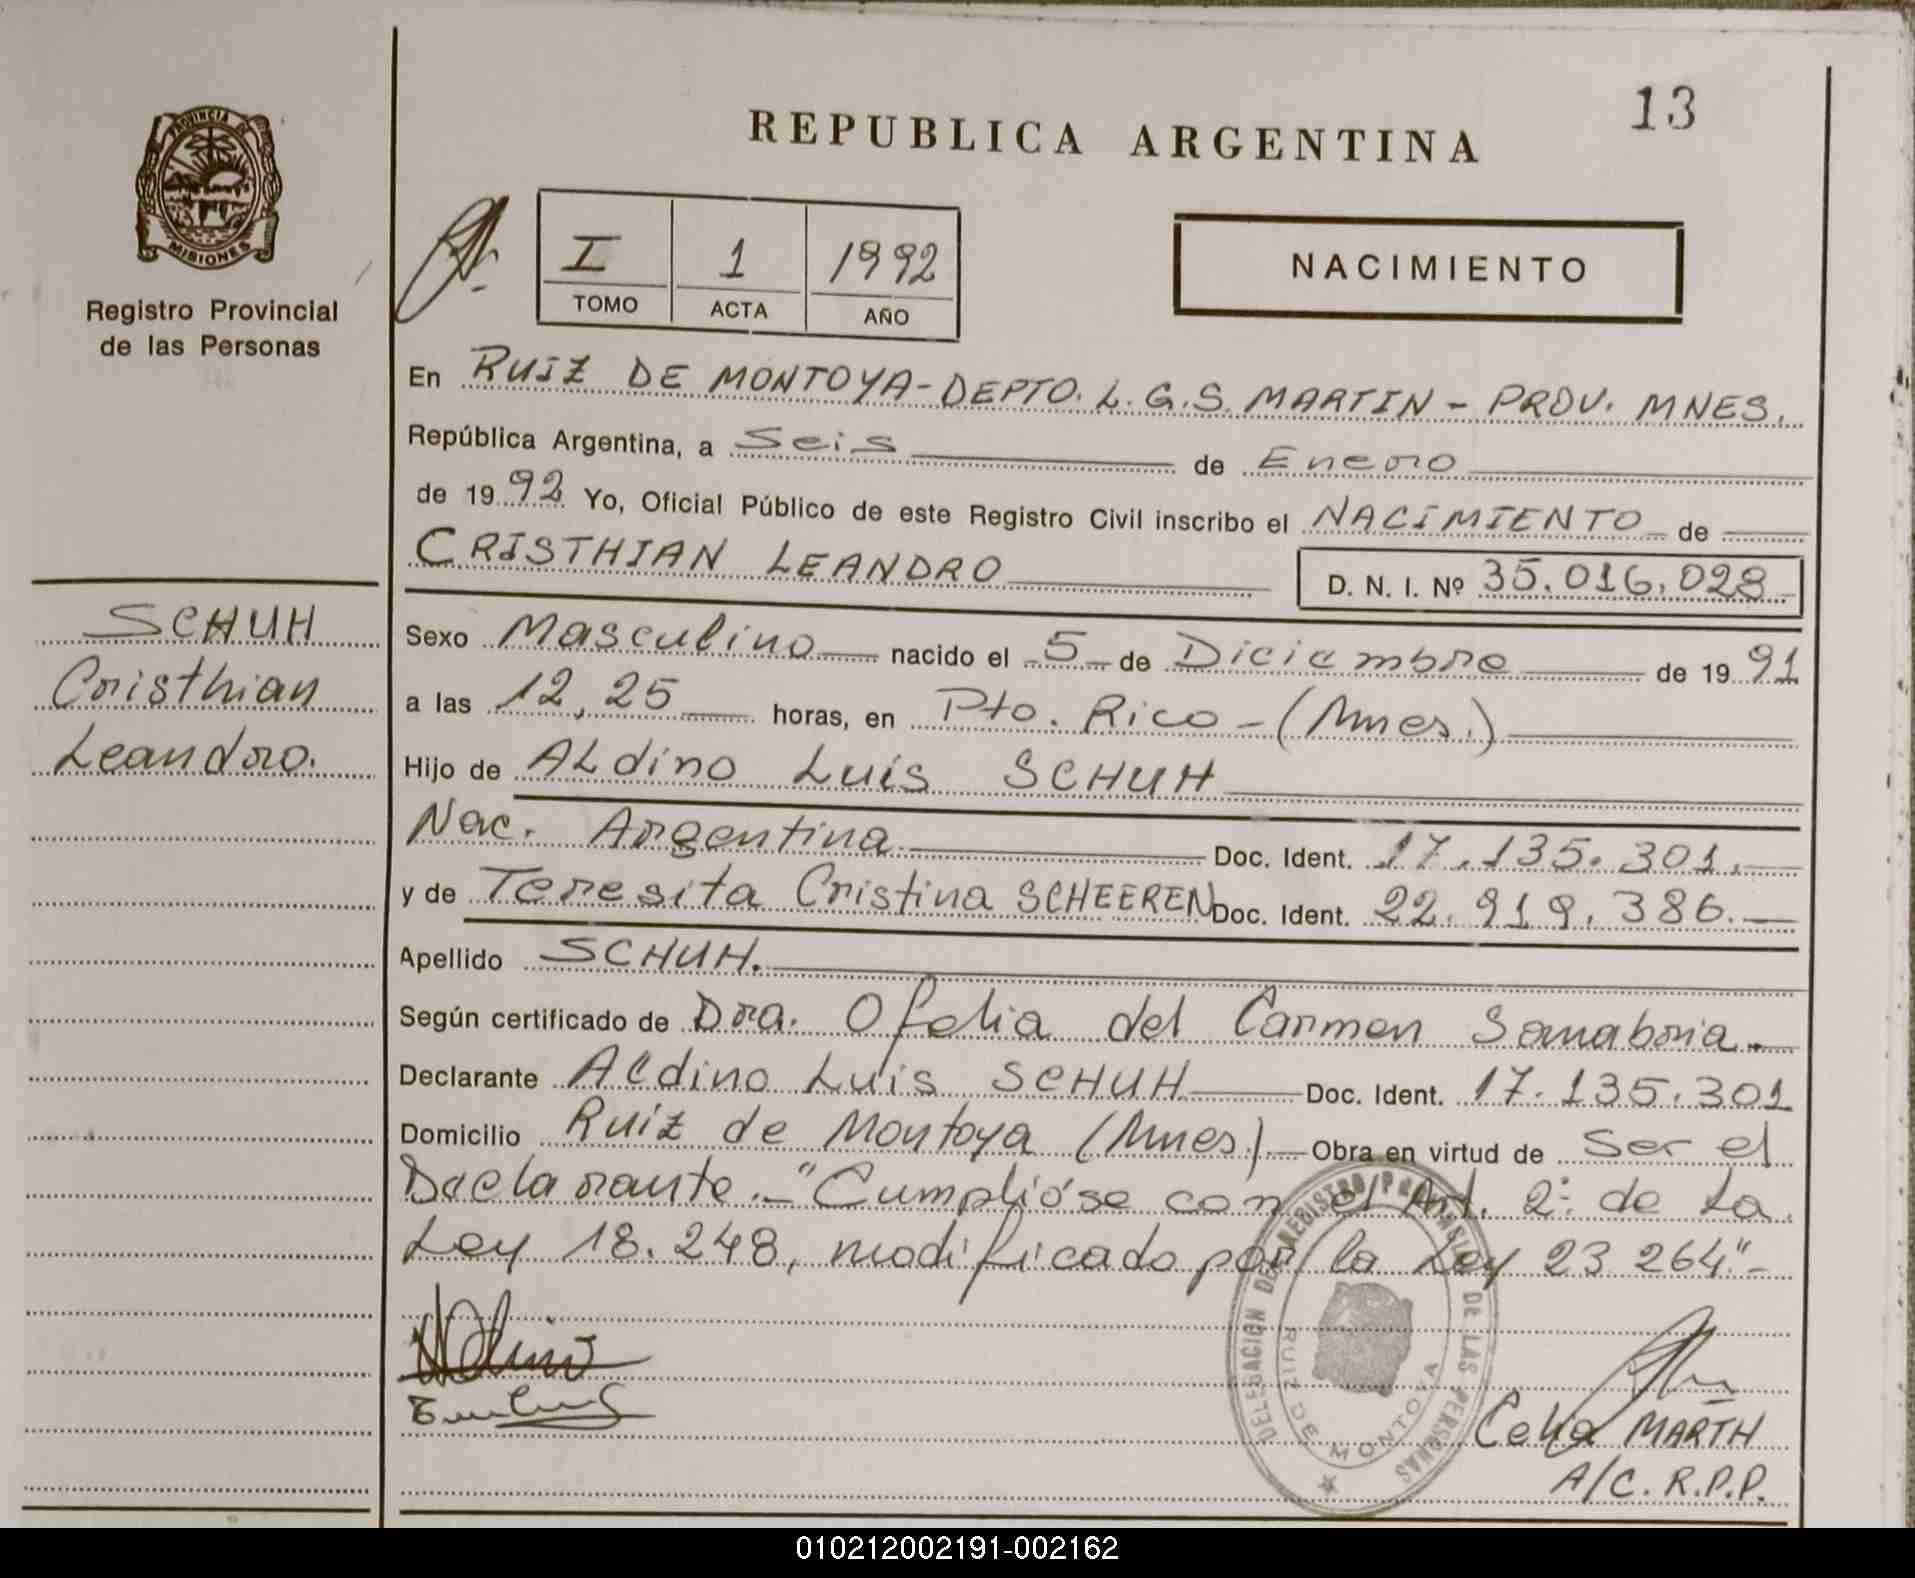 13
REPUBLICA ARGENTINA
PROVINCIA DE
MISIONES
Registro Provincial
de las Personas
I 1 1992
TOMO ACTA AÑO
NACIMIENTO
En RUIZ DE MONTOYA - DEPTO. L.G.S. MARTIN - PROV. MNES.
República Argentina, a Seis de Enero
de 1992 Yo, Oficial Público de este Registro Civil inscribo el NACIMIENTO de
CRISTHIAN LEANDRO D. N. I. Nº 35.016.028
SCHUH
Cristhian
Leandro.
Sexo Masculino nacido el 5 de Diciembre de 1991
a las 12,25 horas, en Pto. Rico - (Mnes.)
Hijo de ALdino Luis SCHUH
Nac. Argentina Doc. Ident. 17.135.301.
y de Teresita Cristina SCHEEREN Doc. Ident. 22.919.386.
Apellido SCHUH.
Según certificado de Dra. Ofelia del Carmen Sanabria.
Declarante Aldino Luis SCHUH Doc. Ident. 17.135.301
Domicilio Ruiz de Montoya (Mnes.) Obra en virtud de Ser el
Declarante. - "Cumplióse con el Art. 2º de La
Ley 18.248, modificado por la Ley 23 264" -
DELEGACION DEL REGISTRO PROVINCIAL DE LAS PERSONAS
RUIZ DE MONTOYA
Celia MARTH
A/C. R.P.P.
010212002191-002162